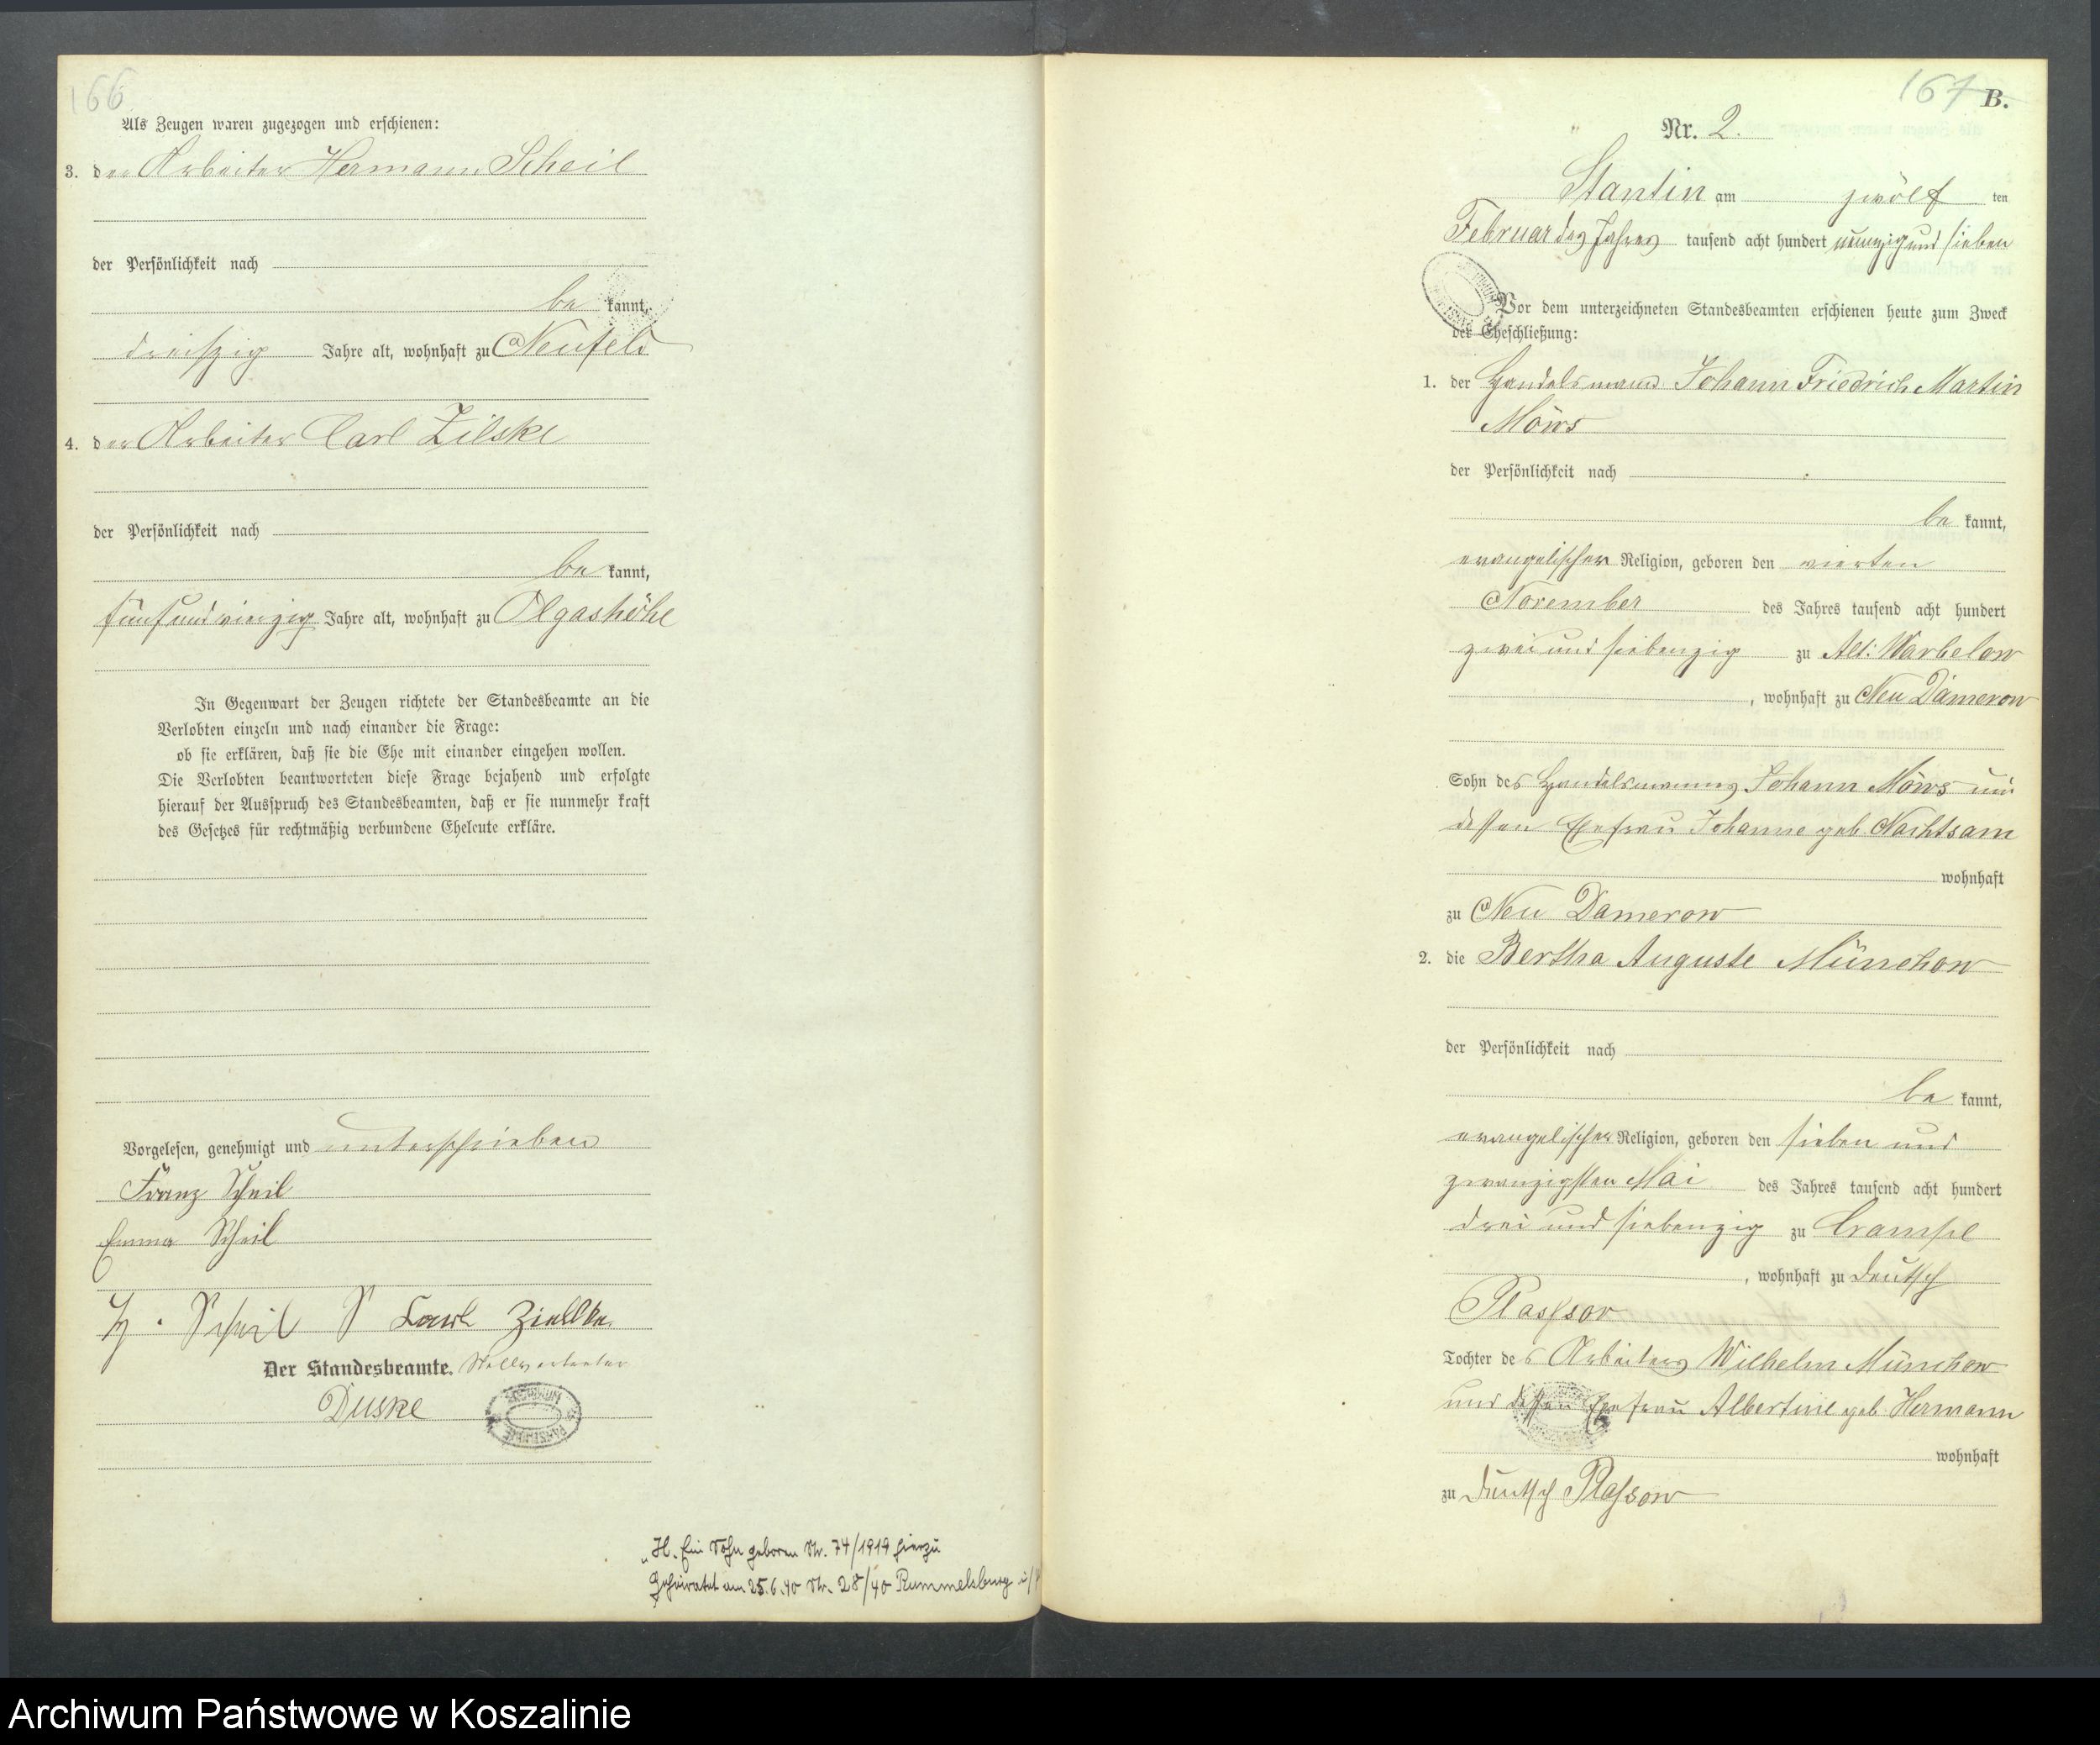 166
Als Zeugen waren zugezogen und erschienen:
3. der Arbeiter Hermann Scheil
der Persönlichkeit nach
be kannt,
dreißig Jahre alt, wohnhaft zu Neufeld
4. der Arbeiter Carl Zilske
der Persönlichkeit nach
be kannt,
fünfundvierzig Jahre alt, wohnhaft zu Olgashöhe
In Gegenwart der Zeugen richtete der Standesbeamte an die
Verlobten einzeln und nach einander die Frage:
ob sie erklären, daß sie die Ehe mit einander eingehen wollen.
Die Verlobten beantworteten diese Frage bejahend und erfolgte
hierauf der Ausspruch des Standesbeamten, daß er sie nunmehr kraft
des Gesetzes für rechtmäßig verbundene Eheleute erkläre.
Vorgelesen, genehmigt und unterschrieben
Franz Scheil
Emma Scheil
H. Scheil Carl Zielke
Der Standesbeamte. Stellvertreter
Duske
H. Ein Sohn geboren Nr. 74/1919 hierzu
Geheiratet am 25.6.40 Nr. 28/40 Rummelsburg i/P
167
B.
Nr. 2.
Stantin am zwölf ten
Februar des Jahres tausend acht hundert neunzig und sieben
Vor dem unterzeichneten Standesbeamten erschienen heute zum Zweck
der Eheschließung:
1. der Handelsmann Johann Friedrich Martin
Möws
der Persönlichkeit nach
be kannt,
evangelischer Religion, geboren den vierten
November des Jahres tausend acht hundert
zwei und siebenzig zu Alt: Warbelow
, wohnhaft zu Neu Damerow
Sohn des Handelsmannes Johann Möws und
dessen Ehefrau Johanne geb. Nachtsam
wohnhaft
zu Neu Damerow
2. die Bertha Auguste Münchow
der Persönlichkeit nach
be kannt,
evangelischer Religion, geboren den sieben und
zwanzigsten Mai des Jahres tausend acht hundert
drei und siebenzig zu Crampe
, wohnhaft zu Deutsch
Plassow
Tochter des Arbeiters Wilhelm Münchow
und dessen Ehefrau Albertine geb. Hermann
wohnhaft
zu Deutsch Plassow
Archiwum Państwowe w Koszalinie